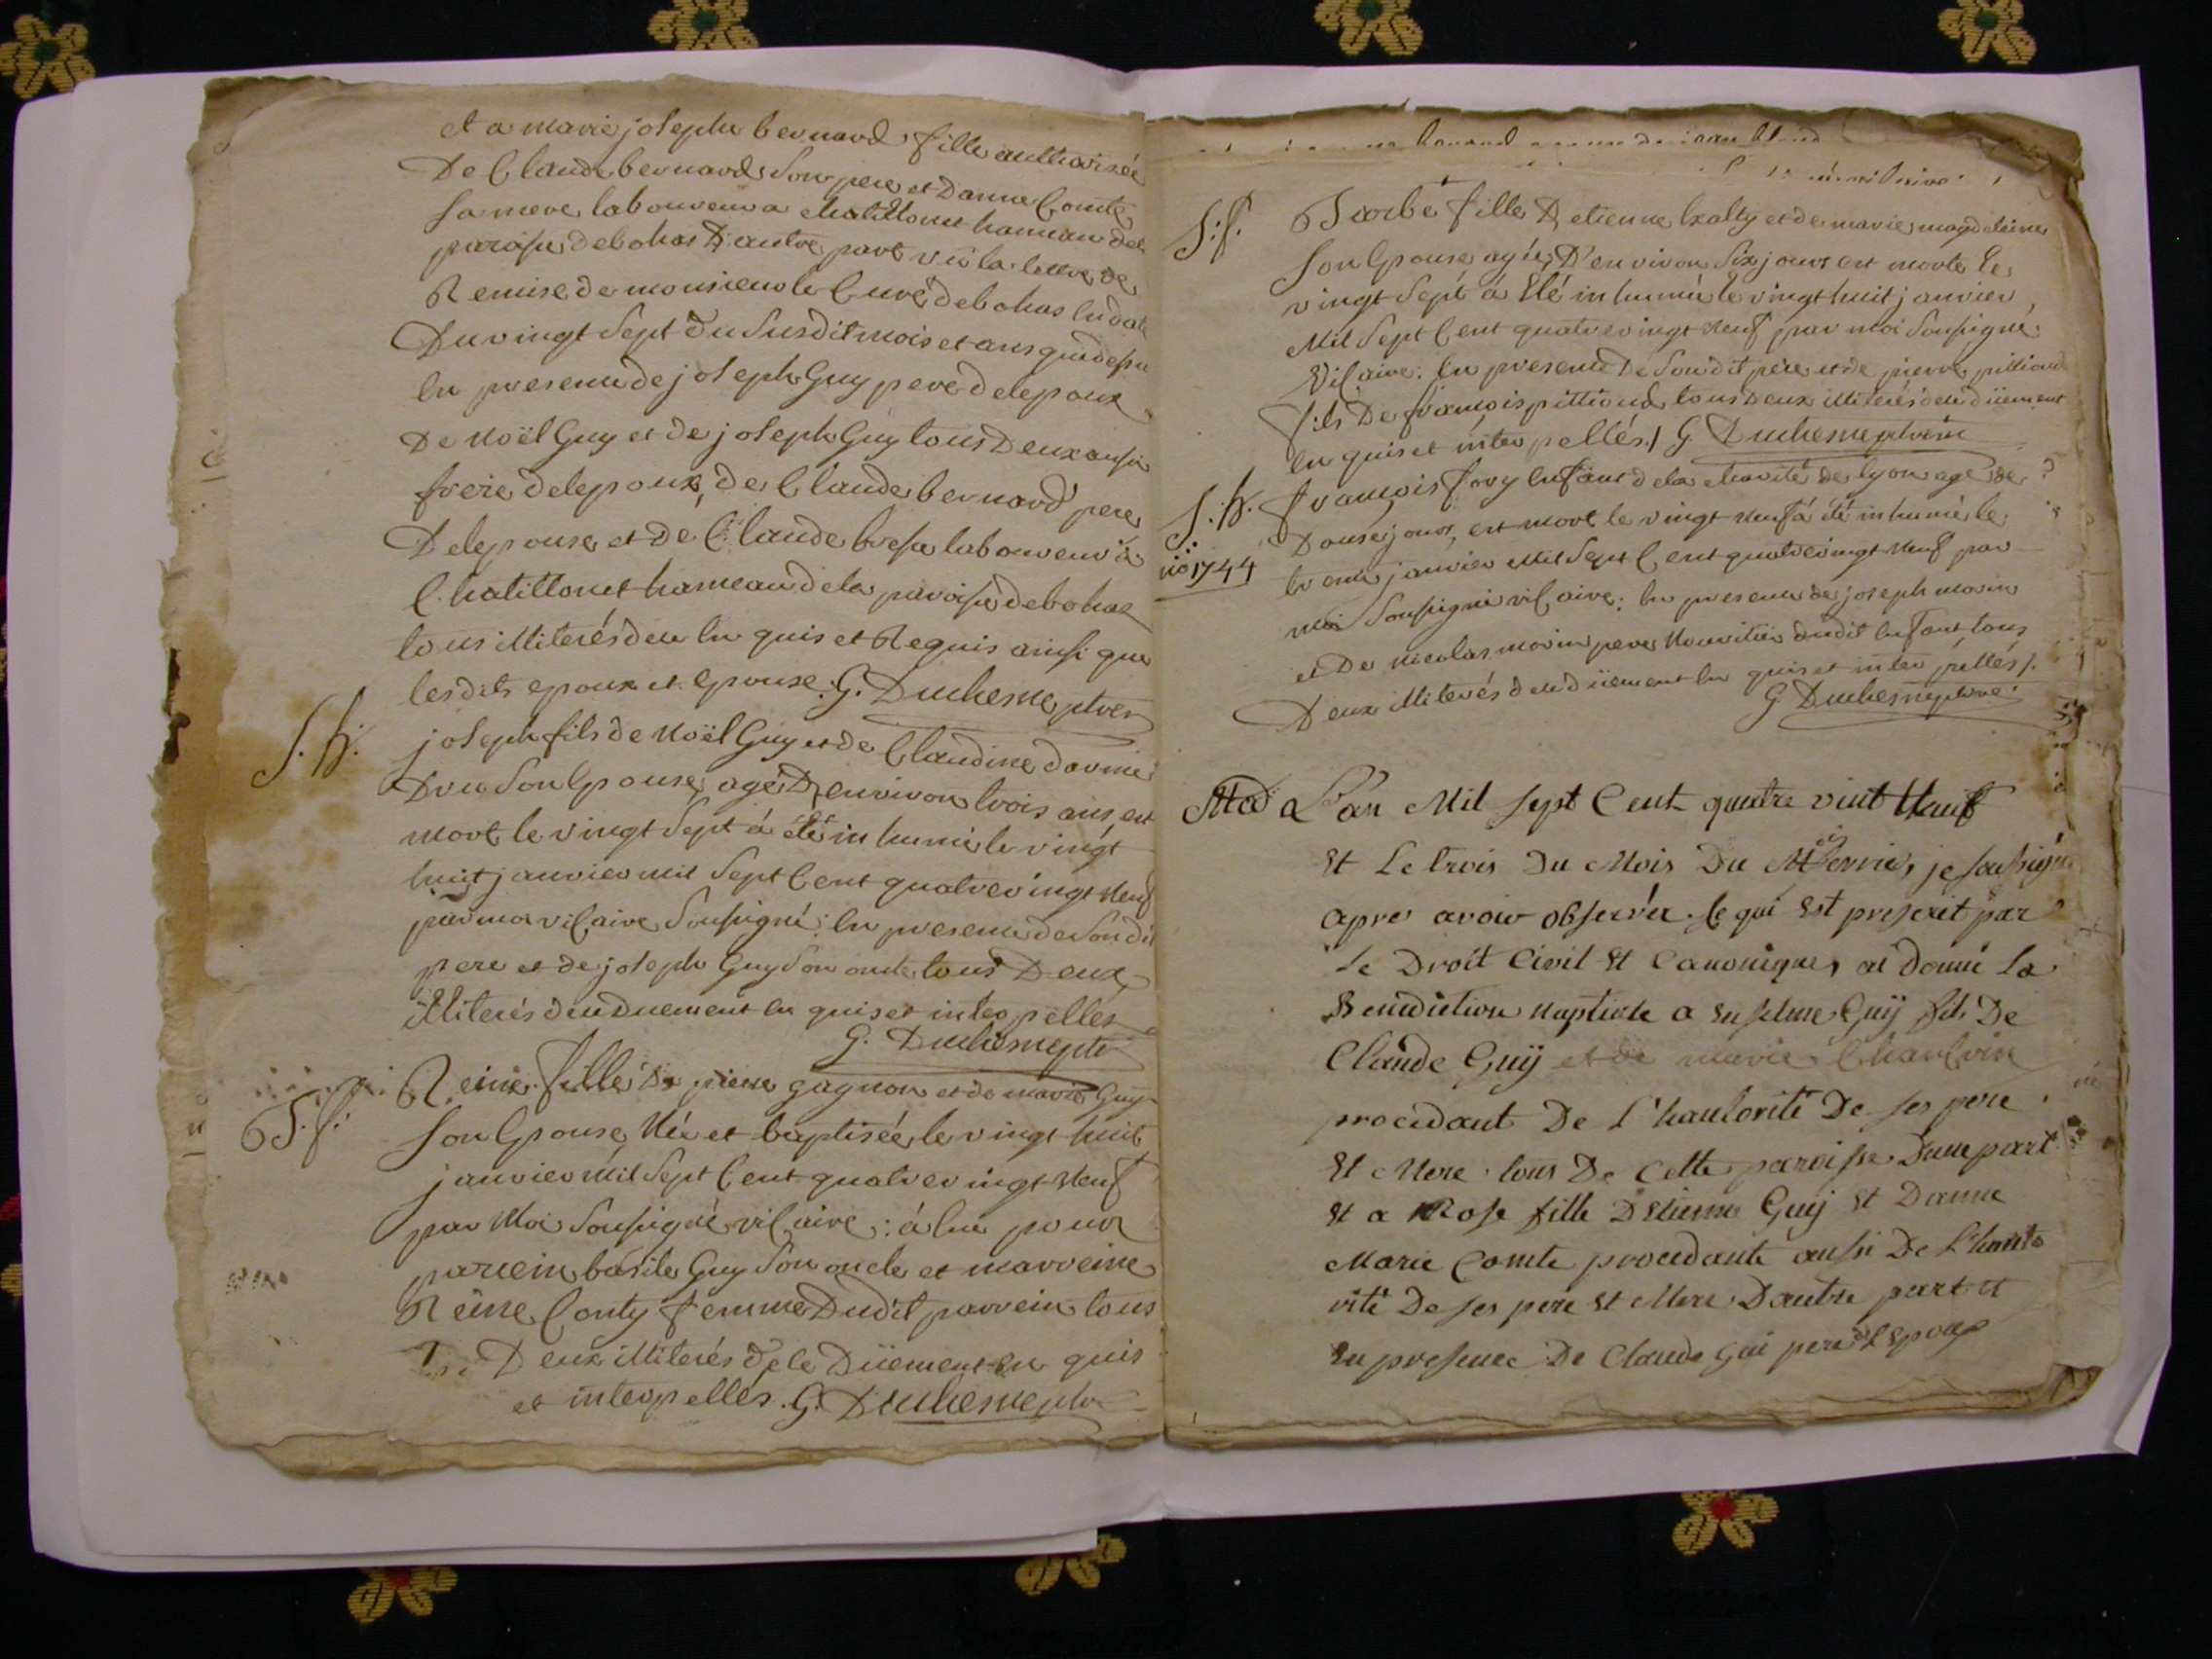 et a marie josephe bernard fille authorisée
De Claude bernard Son pere et Danne Comte
sa mere laboureur a chatillonet hameau dela
paroisse debohas D'autre part vü la lettre de
Remise de monsieur le Curé debohas en date
Du vingt Sept du Susdit mois et ans que dessu
en presence de joseph Guy pere delepoux
De Noël Guy et de joseph Guy tous Deux aussi
frere delepoux, de Claude bernard pere
Delepouse et de Claude laboureur a
Chatillonet hameau dela paroisse debohas
tous illiterés de ce en quis et Requis ainsi que
lesdits epoux et epouse. G. Duchesne ptre
S. h. joseph fils de Noël Guy et de Claudine
Son Epouse, agé D'environ trois ans, est
mort le vingt Sept á été in humé le vingt
huit janvier mil Sept Cent quatrevingt neuf
par moi viCaire Soussigné: en presence de Son dit
pere et de joseph Guy Son oncle tous Deux
illiterés de ce Duement en quis et interpellés
G. Duchesne ptre
B. f. Reine fille De pierre gagnon et de marie Guy
Son Epouse, Née et baptisée le vingt huit
janvier mil Sept Cent quatrevingt Neuf
par Moi Soussigné viCaire: á eue pour
parrein basile Guy Son oncle et marreine
Reine Conty femme Dudit parrein tous
Deux illiterés De ce Düement en quis
et interpellés. G. Duchesne ptre
S. f. Barbe fille D'etienne et de marie magdeleine
Son Epouse agée, D'environ Six jours est morte le
vingt Sept á Eté in humée le vingt huit janvier
Mil Sept Cent quatrevingt Neuf par moi Soussigné
ViCaire: en presence De Sondit pere et de pierre pittiond
fils De françois pittiond tous Deux illiterés de ce düement
en quis et interpellés / G. Duchesne ptre
S. h. françois fory enfant de la charité de lyon agé de
Douse jours, est mort le vingt Neuf á été in humé le
no 1744 trente janvier Mil Sept Cent quatrevingt Neuf par
moi Soussigné viCaire: en presence de joseph morin
et De nicolas morin pere Nourricier dudit enfant tous
Deux illiterés de ce düement en quis et interpellés /.
G. Duchesne ptre.
L'an Mil sept Cent quatre vint Neuif
Et Le trois Du Mois Du je soussigné
apres avoir observer Ce qui Est prescrit par
Le Droit Civil Et Canonique, ai donné La
Benediction Nuptiale a enselme Guÿ fils De
Claude Guÿ et de marie
procedant De L'hautorité De ses pere
Et Mere tous De Cette paroisse Dune part
Et a Rose fille DEtienne Guÿ Et Danne
Marie Comte procedante aussi De L'hauto
rité De ses pere Et Mere Dautre part et
En presence De Claude Gui pere de L'Epoux